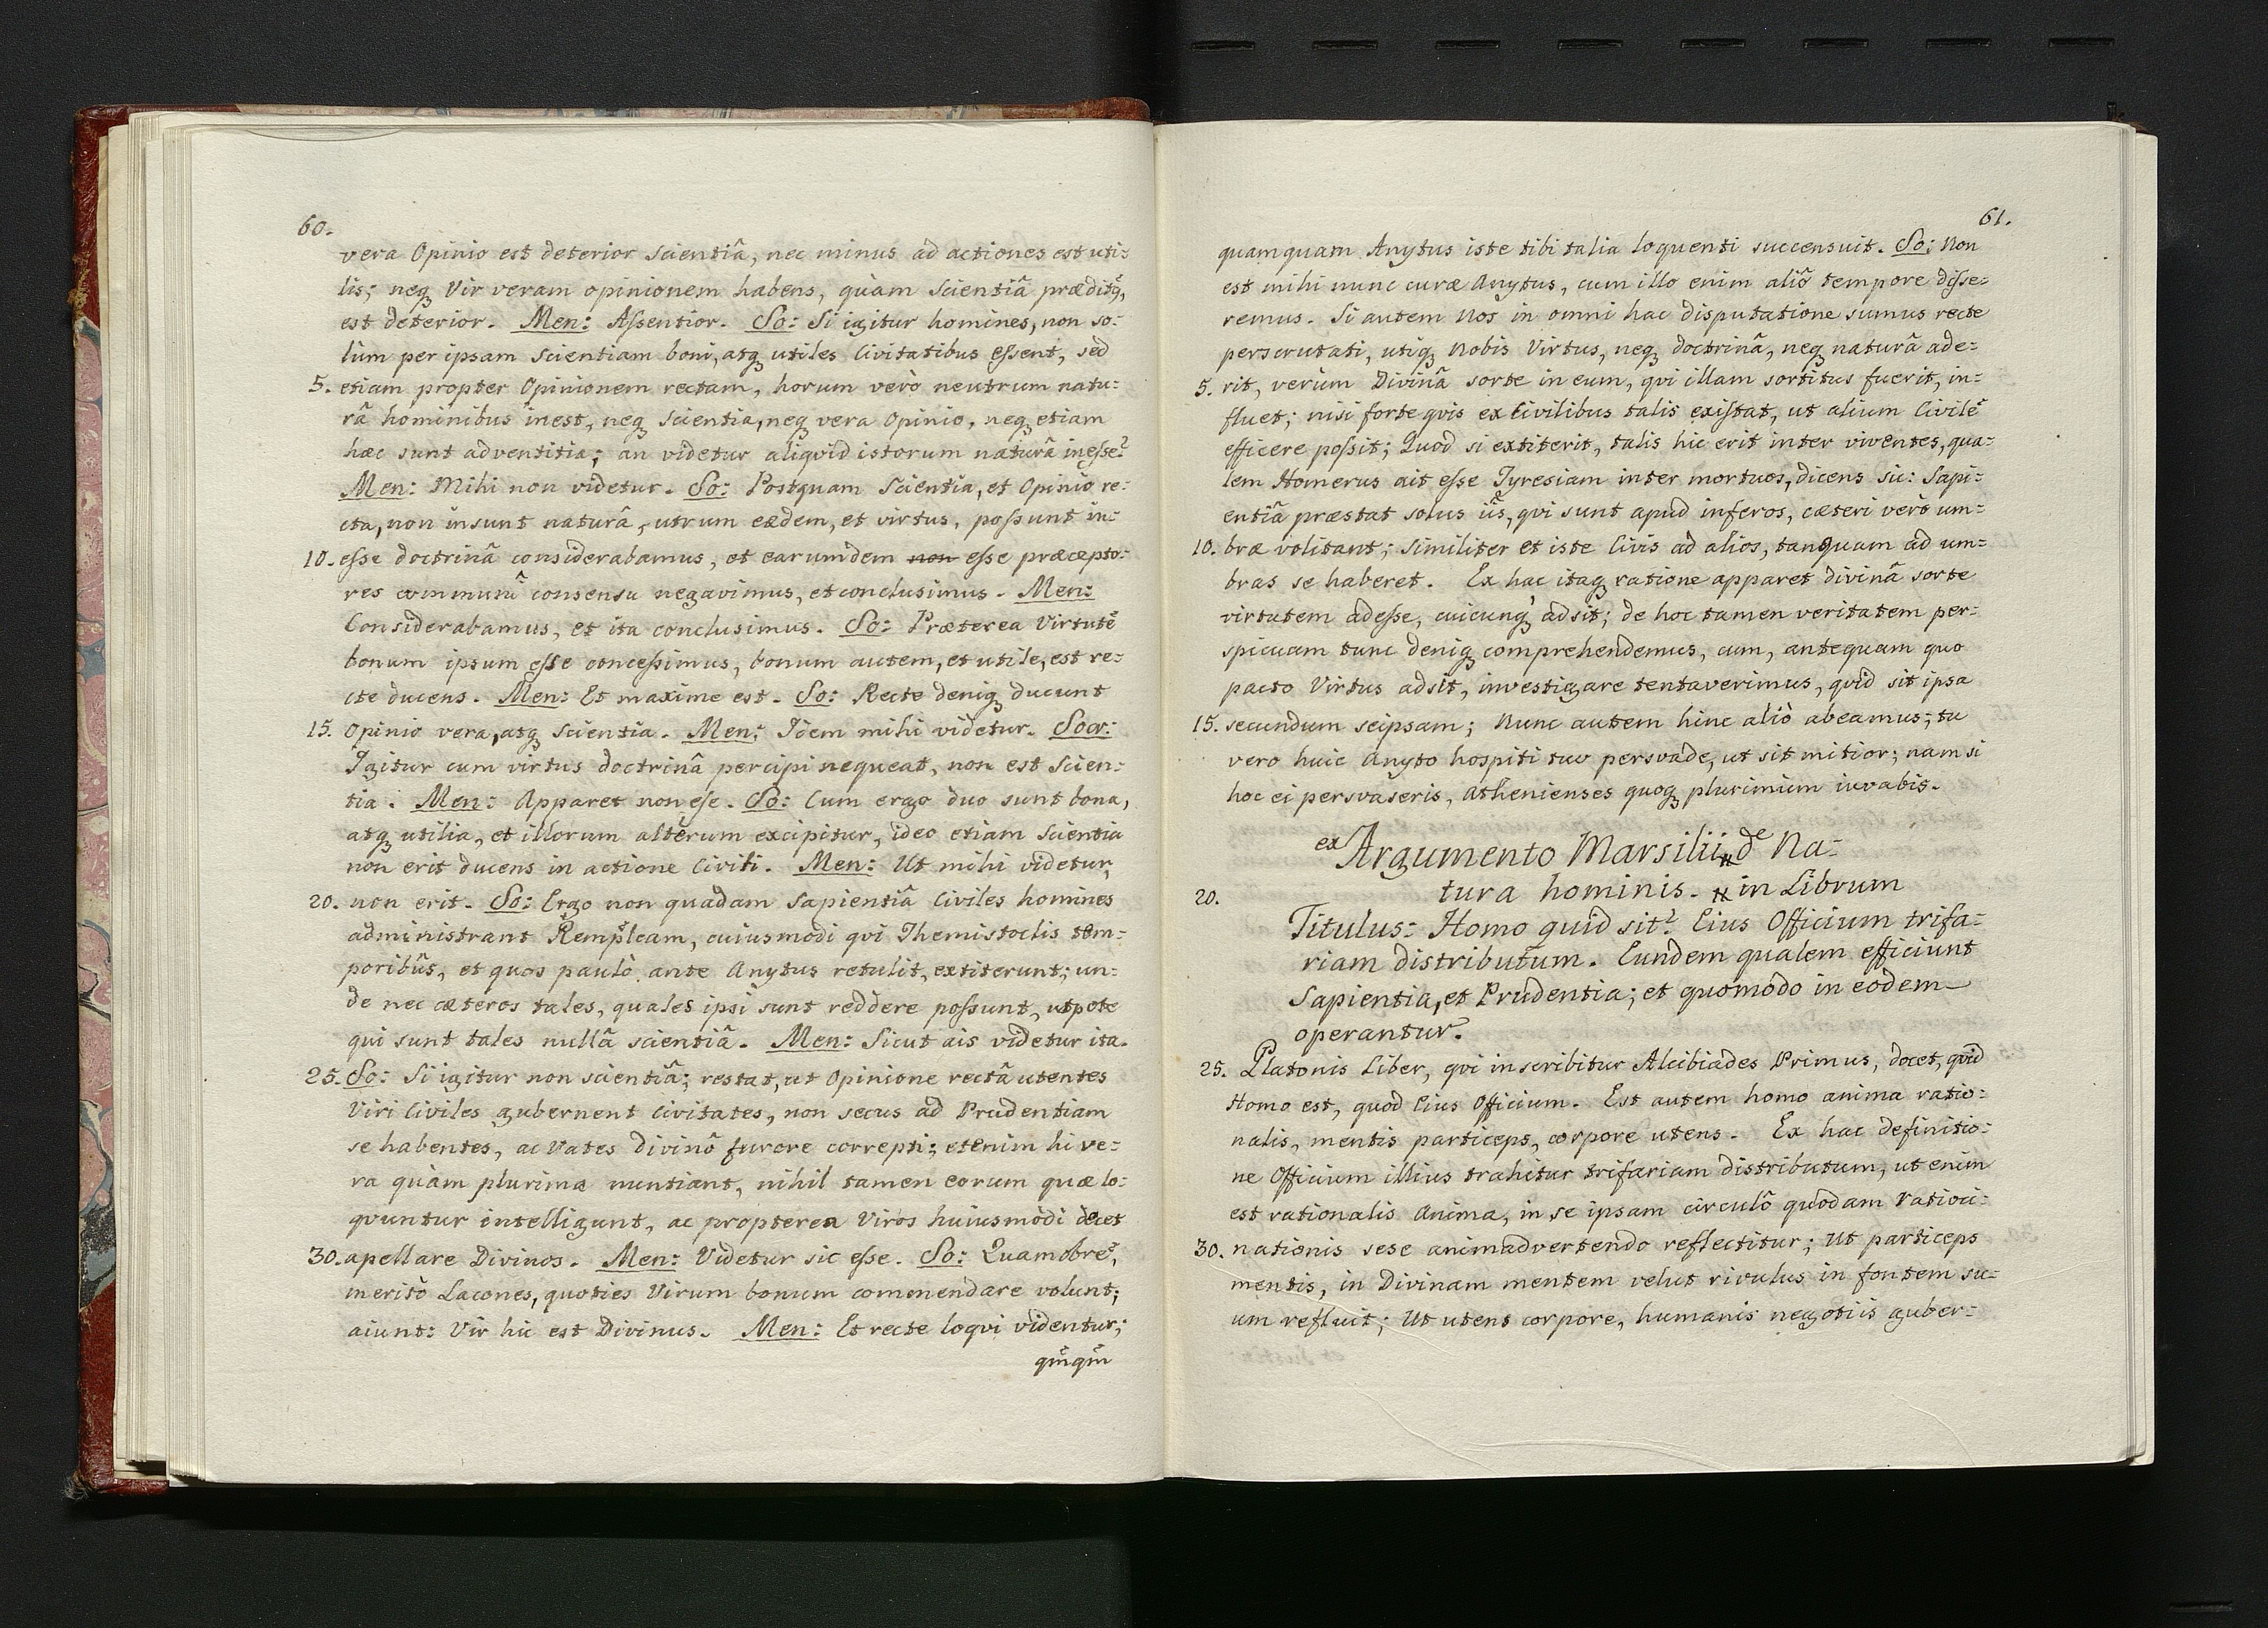 60.
vera Opinio est deterior scientiâ, nec minus ad actiones est uti=
lis; neq₃ Vir veram opinionem habens, quàm scientiâ præditꝰ,
est deterior. Men: Aſsentior. So: Si igitur homines, non so=
lùm per ipsam scientiam boni, atq₃ utiles Civitatibus eſsent, sed
5. etiam propter Opinionem rectam, horum verò neutrum natu=
râ hominibus inest, neq₃ scientia, neq₃ vera Opinio, neq₃ etiam
hæc sunt adventitia; an videtur aliqvid istorum naturâ ineſse?
Men: Mihi non videtur. So: Postquam Scientia, et Opinio re=
cta, non insunt naturâ, utrum eædem, et virtus, poſsunt in=
10. eſse doctrinâ considerabamus, et earumdem non eſse præcepto=
res communi consensu negavimus, et conclusimus. Men:
Considerabamus, et ita conclusimus. So: Præterea Virtutē
bonum ipsum eſse conceſsimus, bonum autem, et utile, est re=
cte ducens. Men: Et maxime est. So: Recte deniq₃ ducunt
15. Opinio vera, atq₃ Scientia. Men: Idem mihi videtur. Socr:
Igitur cum virtus doctrinâ percipi nequeat, non est Scien=
tia. Men: Apparet non eſse. So: Cum ergo duo sunt bona,
atq₃ utilia, et illorum alterum excipitur, ideo etiam Scientia
non erit ducens in actione Civili. Men: Ut mihi videtur,
20. non erit. So: Ergo non quadam Sapientiâ Civiles homines
administrant Rempl̃cam, cuiusmodi qvi Themistoclis tem=
poribûs, et quos paulò ante Anytus retulit, extiterunt; un=
de nec cæteros tales, quales ipsi sunt reddere poſsunt, utpote
qui sunt tales nullâ scientiâ. Men: Sicut ais videtur ita.
25. So: Si igitur non scientiâ; restat, ut Opinione rectâ utentes
Viri Civiles gubernent Civitates, non secus ad Prudentiam
se habentes, ac Vates divinô furore correpti; etenim hi ve=
ra quàm plurima nuntiant, nihil tamen eorum quæ lo=
qvuntur intelligunt, ac propterea Viros huiusmodi decet
30. apellare Divinos. Men: Videtur sic eſse. So: Quamobrē,
meritò Lacones, quoties Virum bonum commendare volunt;
aiunt: Vir hic est Divinus. Men: Et recte loqvi videntur;
qm̃qm̃
61.
quamquam Anytus iste tibi talia loquenti succensuit. So: Non
est mihi nunc curæ Anytus, cum illo enim aliô tempore diſse=
remus. Si autem Nos in omni hac disputatione sumus recte
perscrutati, utiq₃ Nobis Virtus, neq₃ doctrinâ, neq₃ naturâ ade=
5. rit, verùm Divinâ sorte in eum, qvi illam sortitus fuerit, in=
fluet; nisi forte qvis ex Civilibus talis existat, ut alium Civilē
efficere poſsit; Quod si extiterit, talis hic erit inter viventes, qua=
lem Homerus ait eſse Tyresiam inter mortuos, dicens sic: Sapi=
entiâ præstat solus iis, qvi sunt apud inferos, cæteri verò um=
10. bræ volitant; similiter et iste Civis ad alios, tanquam ad um=
bras se haberet. Ex hac itaq₃ ratione apparet divinâ sorte
virtutem adeſse, cuicunq₃ adsit; de hoc tamen veritatem per=
spicuam tunc deniq₃ comprehendemus, cum, antequam quo
pacto Virtus adsit, investigare tentaverimus, qvid sit ipsa
15. secundum seipsam; Nunc autem hinc aliò abeamus; tu
vero huic Anyto hospiti tuo persvade, ut sit mitior; nam si
hoc ei persvaseris, Athenienses quoq₃ plurimùm iuvabis.
ex Argumento Marsilii de Na=
20. tura hominis. in Librum
Titulus: Homo quid sit? Eius Officium trifa=
riam distributum. Eundem qualem efficiunt
Sapientia, et Prudentia; et quomodo in eodem
operantur.
25. Platonis Liber, qvi inscribitur Alcibiades Primus, docet, qvid
Homo est, quod Eius Officium. Est autem homo anima ratio=
nalis, mentis particeps, corpore utens. Ex hac definitio=
ne Officium illius trahitur trifariam distributum, ut enim
est rationalis Anima, in se ipsam circulô quodam ratioci=
30. nationis sese animadvertendo reflectitur; Ut particeps
mentis, in Divinam mentem velut rivulus in fontem su=
um refluit; Ut utens corpore, humanis negotiis guber=